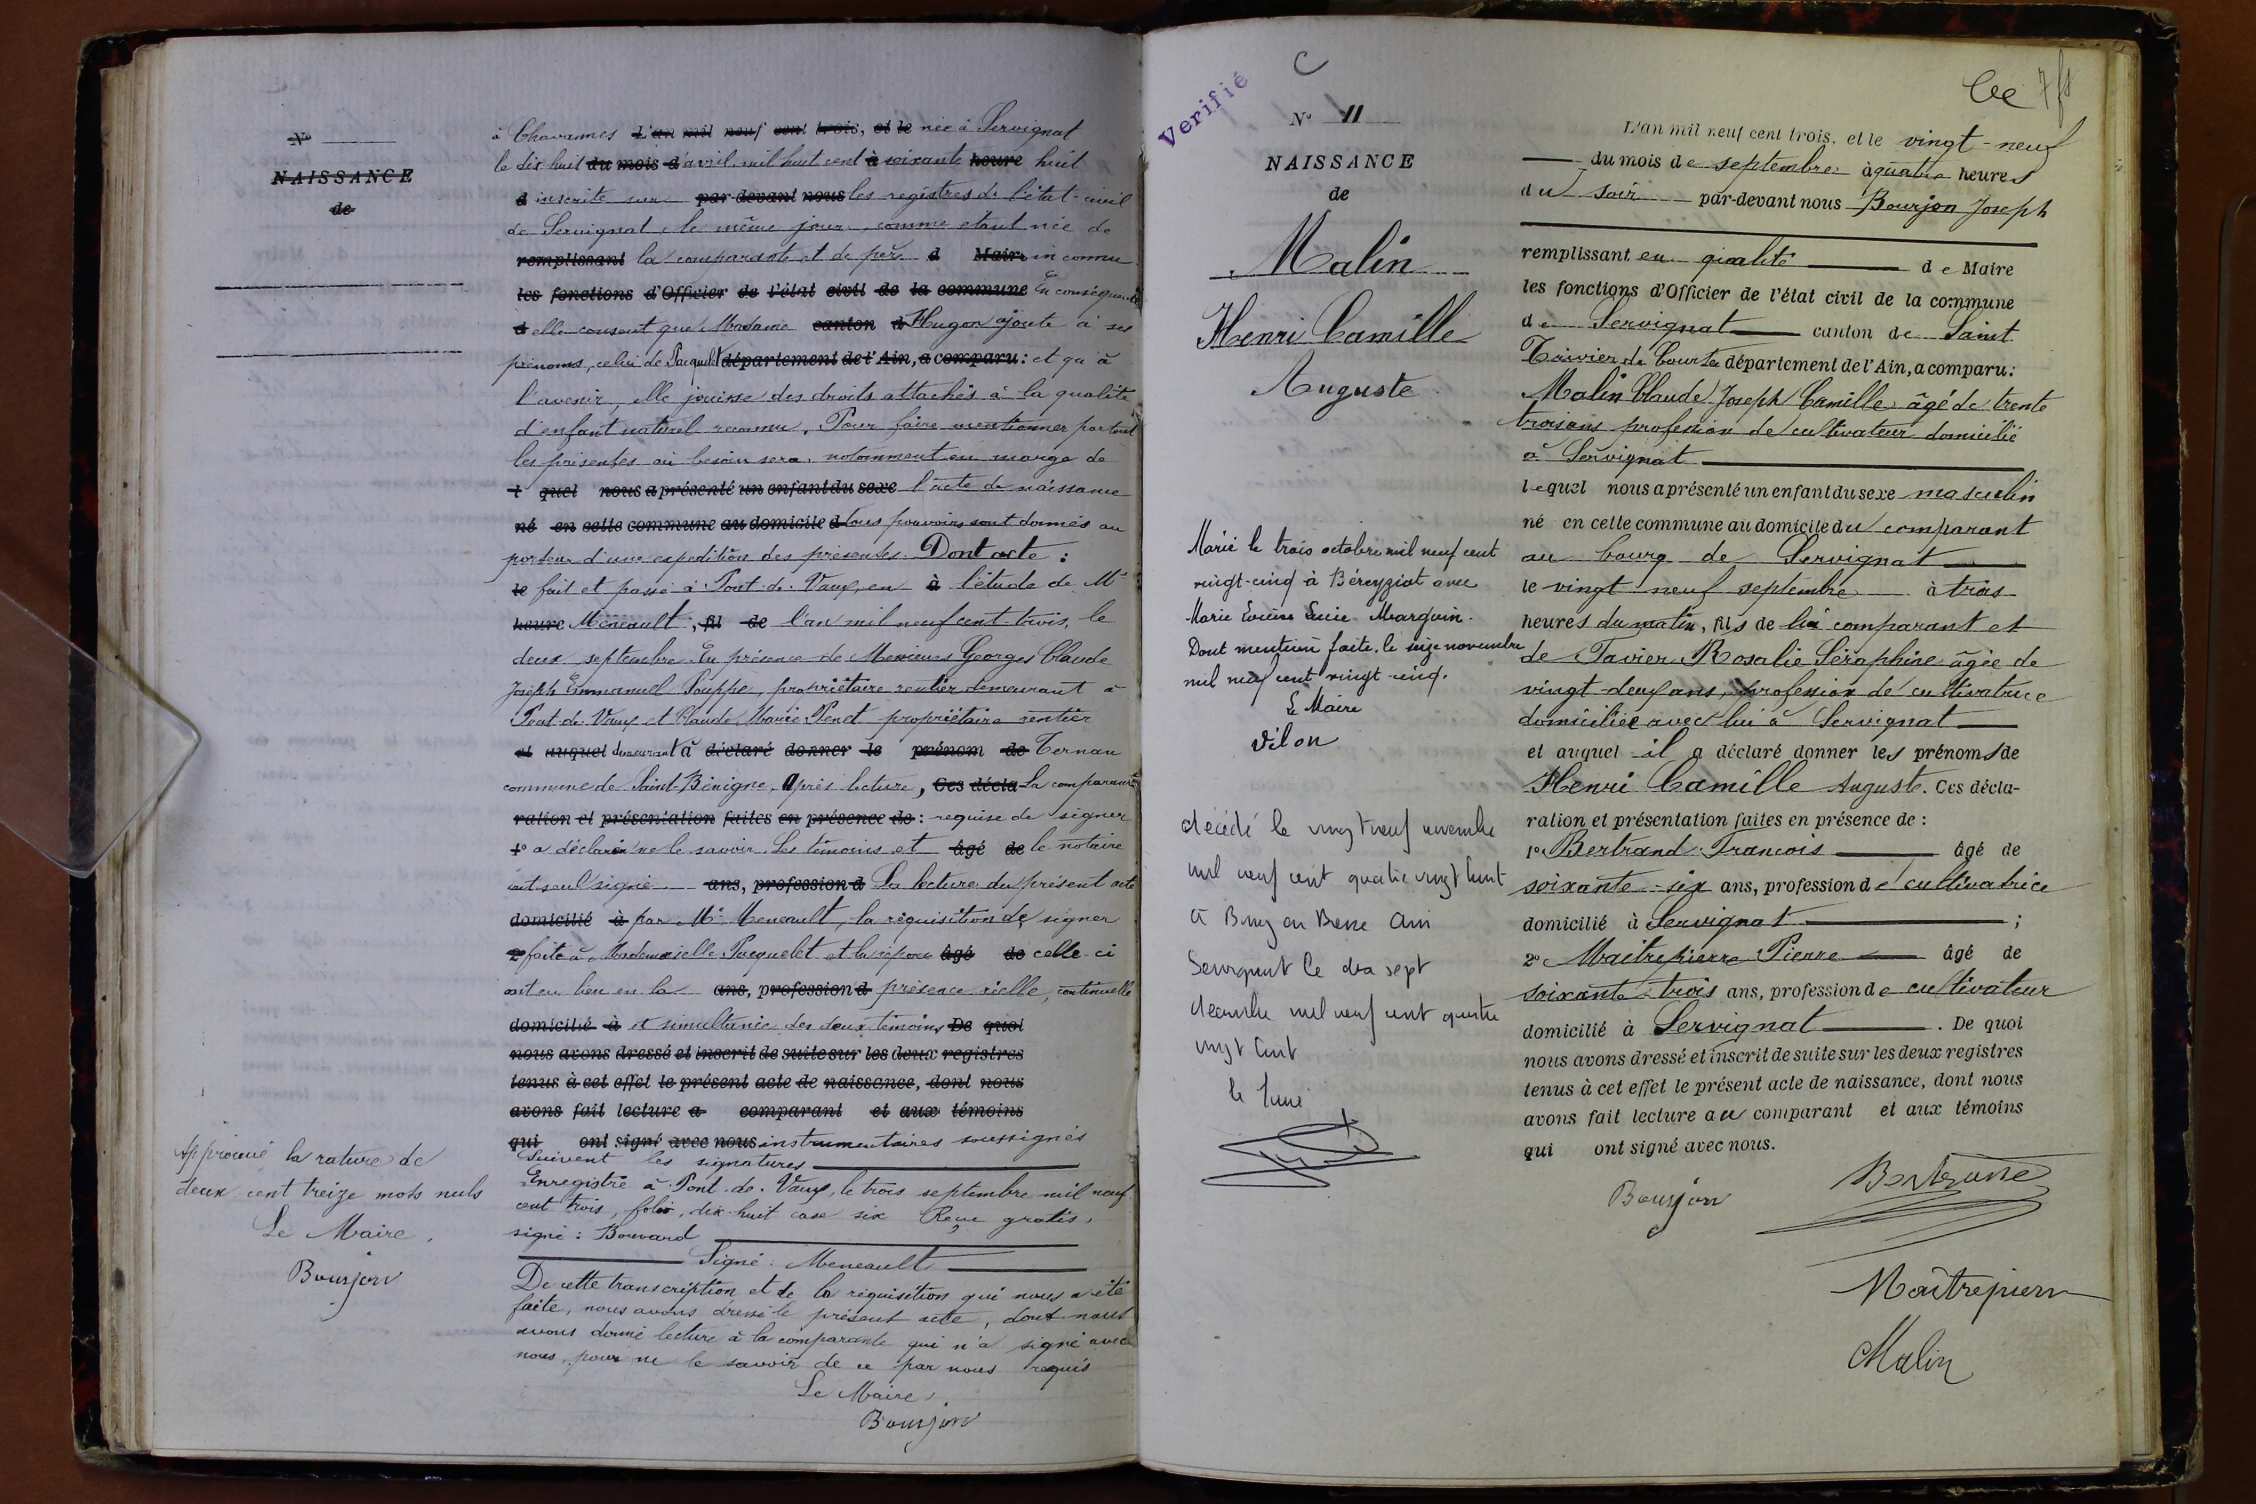 N°
NAISSANCE
de
à Chavannes L'an mil neuf cent trois, et le née à Servignat
le dix huit du mois d'avril mil huit cent à soixante heure huit
d inscrite sur par-devant nous les registres de l'état-civil
de Servignat le même jour comme étant née de
remplissant la comparante et de père d Maire inconnu
les fonctions d'Officier de l'état civil de la commune En conséquence
d elle consent que Madame canton d Hugon ajoute à ses
prénoms, celui de Pacquelet département de l'Ain, a comparu: et qu'à
l'avenir, elle jouisse des droits attachés à la qualité
d'enfant naturel reconnu. Pour faire mentionner partout
les présentes où besoin sera, notamment en marge de
l quel nous a présenté un enfant du sexe l'acte de naissance
né en cette commune au domicile d tous pouvoirs sont donnés au
porteur d'une expédition des présentes. Dont acte:
le fait et passé à Pont-de-Vaux, en à l'étude de Me
heure Meneault, fil de l'an mil neuf cent trois, le
deux septembre En présence de Messieurs Georges Claude
Joseph Emmanuel Souppe, propriétaire rentier demeurant à
Pont-de-Vaux et Claude Marie Penet propriétaire rentier
et auquel demeurant à déclaré donner le prénom de Ternan
commune de Saint-Bénigne. Après lecture, Ces décla La comparante
ration et présentation faites en présence de: requise de signer
1° a déclaré ne le savoir. Les témoins et âgé de le notaire
ont seul signé ans, profession d La lecture du présent acte
domicilié à par Me Meneault, la réquisition de signer
2° faite à Mademoiselle Pacquelet et la réponse âgé de celle-ci
ont eu lieu en la ans, profession d présence réelle, continuelle
domicilié à et simultanée des deux témoins De quoi
nous avons dressé et inscrit de suite sur les deux registres
tenus à cet effet le présent acte de naissance, dont nous
avons fait lecture a comparant et aux témoins
qui ont signé avec nous instrumentaires soussignés
Suivent les signatures
Enregistré à Pont-de-Vaux, le trois septembre mil neuf
cent trois, folio, dix-huit case six Reçu gratis,
signé: Bouvard
Signé: Meneault
De cette transcription et de la réquisition qui nous a été
faite, nous avons dressé le présent acte, dont nous
avons donné lecture à la comparante qui n'a signé avec
nous, pour ne le savoir de ce par nous requis
Le Maire,
Bourjon
Approuvé la rature de
deux cent treize mots nuls
Le Maire,
Bourjon
Verifié
C
N° 11
NAISSANCE
de
Malin
Henri Camille
Auguste
Marié le trois octobre mil neuf cent
vingt-cinq à Béreyziat avec
Marie Lucie Marguin.
Dont mention faite, le seize novembre
mil neuf cent vingt-cinq.
Le Maire
Vilon
décédé le vingt neuf novembre
mil neuf cent quatre vingt huit
à Bourg en Bresse Ain
Servignat le dix sept
décembre mil neuf cent quatre
vingt huit
le Maire
7
L'an mil neuf cent trois, et le vingt-neuf
du mois de septembre à quatre heures
du soir par-devant nous Bourjon Joseph
remplissant en qualité de Maire
les fonctions d'Officier de l'état civil de la commune
de Servignat canton de Saint
Trivier de Courtes département de l'Ain, a comparu:
Malin Claude Joseph Camille âgé de trente
trois ans profession de cultivateur domicilié
à Servignat
lequel nous a présenté un enfant du sexe masculin
né en cette commune au domicile du comparant
au bourg de Servignat
le vingt neuf septembre à trois
heures du matin, fils de lui comparant et
de Tavier Rosalie Séraphine âgée de
vingt-deux ans, profession de cultivatrice
domiciliée avec lui à Servignat
et auquel il a déclaré donner les prénoms de
Henri Camille Auguste. Ces décla-
ration et présentation faites en présence de:
1° Bertrand François âgé de
soixante-six ans, profession de cultivatrice
domicilié à Servignat;
2° Maitrepierre Pierre âgé de
soixante-trois ans, profession de cultivateur
domicilié à Servignat. De quoi
nous avons dressé et inscrit de suite sur les deux registres
tenus à cet effet le présent acte de naissance, dont nous
avons fait lecture au comparant et aux témoins
qui ont signé avec nous.
Bourjon
Bertrand
Maîtrepierre
Malin